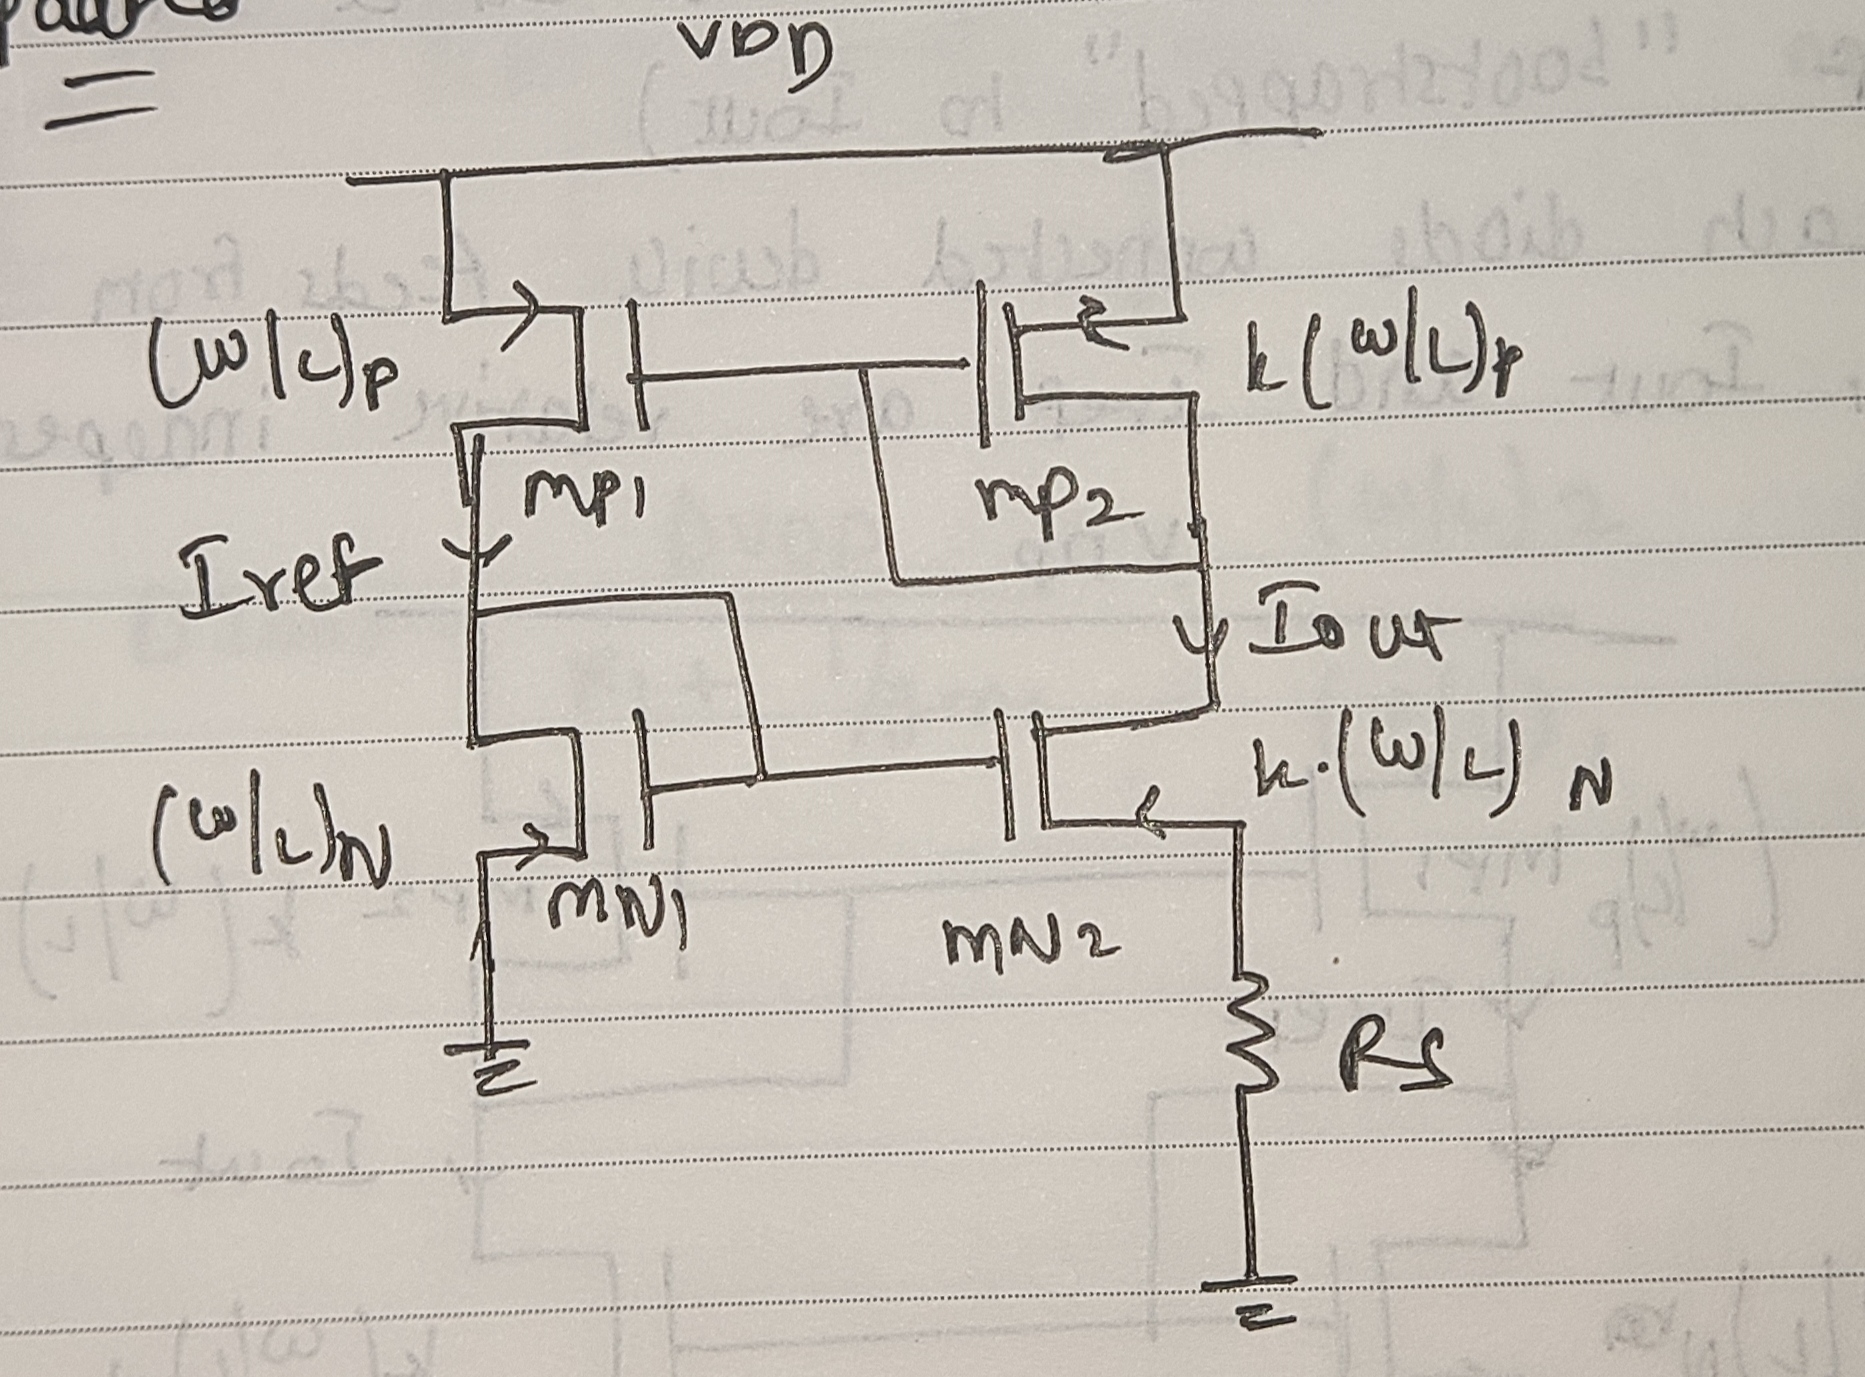 VDD
(W/L)P
k(W/L)P
MP1
MP2
Iref
Iout
(W/L)N
k.(W/L) N
MN1
MN2
RS